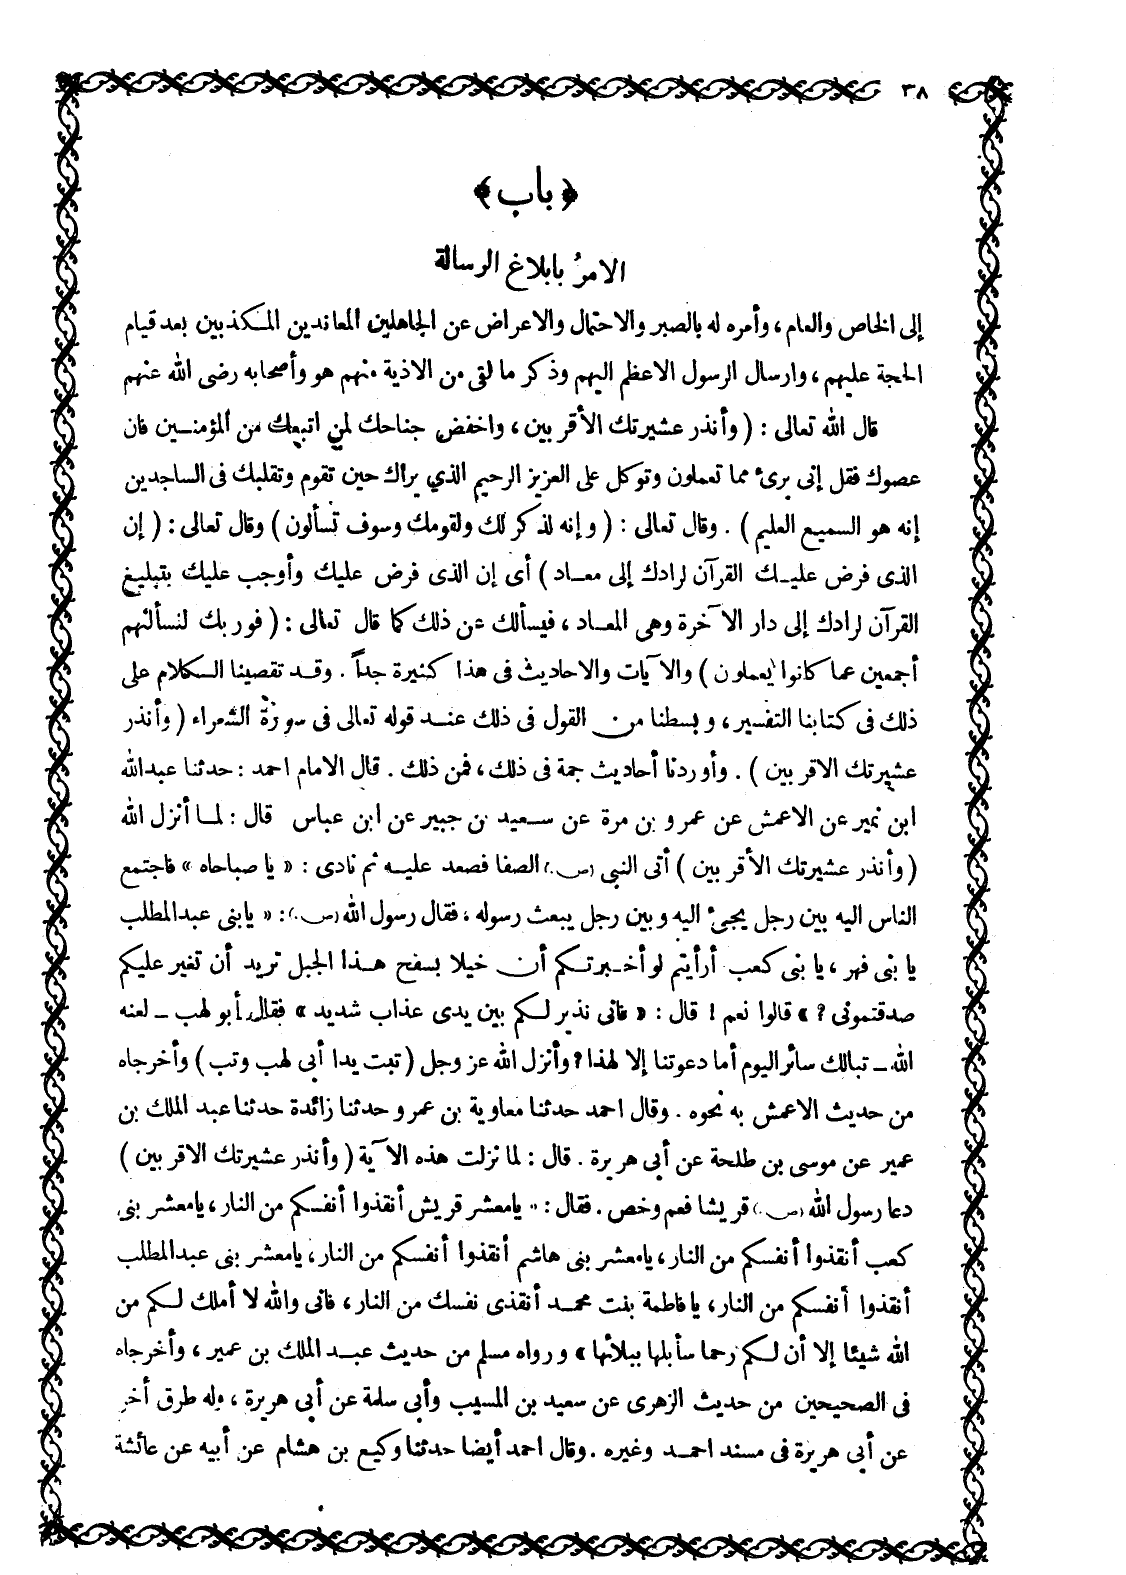 ٣٨
﴿ باب ﴾
الامرُ بابلاغ الرسالة
إلى الخاص والعام، وأمره له بالصبر والاحتمال والاعراض عن الجاهلين المعاندين المكذبين بعد قيام
الحجة عليهم، وارسال الرسول الاعظم اليهم وذكر ما لقى من الاذية منهم هو وأصحابه رضى الله عنهم
قال الله تعالى : ( وأنذر عشيرتك الأقربين، واخفض جناحك لمن اتبعك من المؤمنين فان
عصوك فقل إنى برئ مما تعملون وتوكل على العزيز الرحيم الذي يراك حين تقوم وتقلبك فى الساجدين
إنه هو السميع العليم ) . وقال تعالى : ( وإنه لذكر لك ولقومك وسوف تسألون ) وقال تعالى : ( إن
الذى فرض عليك القرآن لرادك إلى معاد ) أى إن الذى فرض عليك وأوجب عليك بتبليغ
القرآن لرادك إلى دار الآخرة وهى المعاد، فيسألك عن ذلك كما قال تعالى : ( فوربك لنسألنهم
أجمعين عما كانوا يعملون ) والآيات والاحاديث فى هذا كثيرة جداً . وقد تقصينا الكلام على
ذلك فى كتابنا التفسير، وبسطنا من القول فى ذلك عند قوله تعالى فى سورة الشعراء ( وأنذر
عشيرتك الاقربين ) . وأوردنا أحاديث جمة فى ذلك، فمن ذلك . قال الامام احمد : حدثنا عبدالله
ابن نمير عن الاعمش عن عمرو بن مرة عن سعيد بن جبير عن ابن عباس قال : لما أنزل الله
( وأنذر عشيرتك الأقربين ) أتى النبي (ص.) الصفا فصعد عليه ثم نادى : « يا صباحاه » فاجتمع
الناس اليه بين رجل يجئ اليه وبين رجل يبعث رسوله، فقال رسول الله (ص.) : « يابنى عبدالمطلب
يا بنى فهر، يا بنى كعب أرأيتم لو أخبرتكم أن خيلا بسفح هذا الجبل تريد أن تغير عليكم
صدقتمونى ? » قالوا نعم ! قال : « فانى نذير لكم بين يدى عذاب شديد » فقال أبو لهب ـ لعنه
الله ـ تبالك سائر اليوم أما دعوتنا إلا لهذا ? وأنزل الله عز وجل ( تبت يدا أبى لهب وتب ) وأخرجاه
من حديث الاعمش به نحوه . وقال احمد حدثنا معاوية بن عمرو حدثنا زائدة حدثنا عبد الملك بن
عمير عن موسى بن طلحة عن أبى هريرة . قال : لما نزلت هذه الآية ( وأنذر عشيرتك الاقربين )
دعا رسول الله (ص.) قريشا فعم وخص . فقال : « يامعشر قريش أنقذوا أنفسكم من النار، يامعشر بنى
كعب أنقذوا أنفسكم من النار، يامعشر بنى هاشم أنقذوا أنفسكم من النار، يامعشر بنى عبدالمطلب
أنقذوا أنفسكم من النار، يا فاطمة بنت محمد أنقذى نفسك من النار، فانى والله لا أملك لكم من
الله شيئا إلا أن لكم رحما سأبلها ببلائها » ورواه مسلم من حديث عبد الملك بن عمير، وأخرجاه
فى الصحيحين من حديث الزهرى عن سعيد بن المسيب وأبى سلمة عن أبى هريرة، وله طرق أخر
عن أبى هريرة فى مسند احمد وغيره . وقال احمد أيضا حدثنا وكيع بن هشام عن أبيه عن عائشة